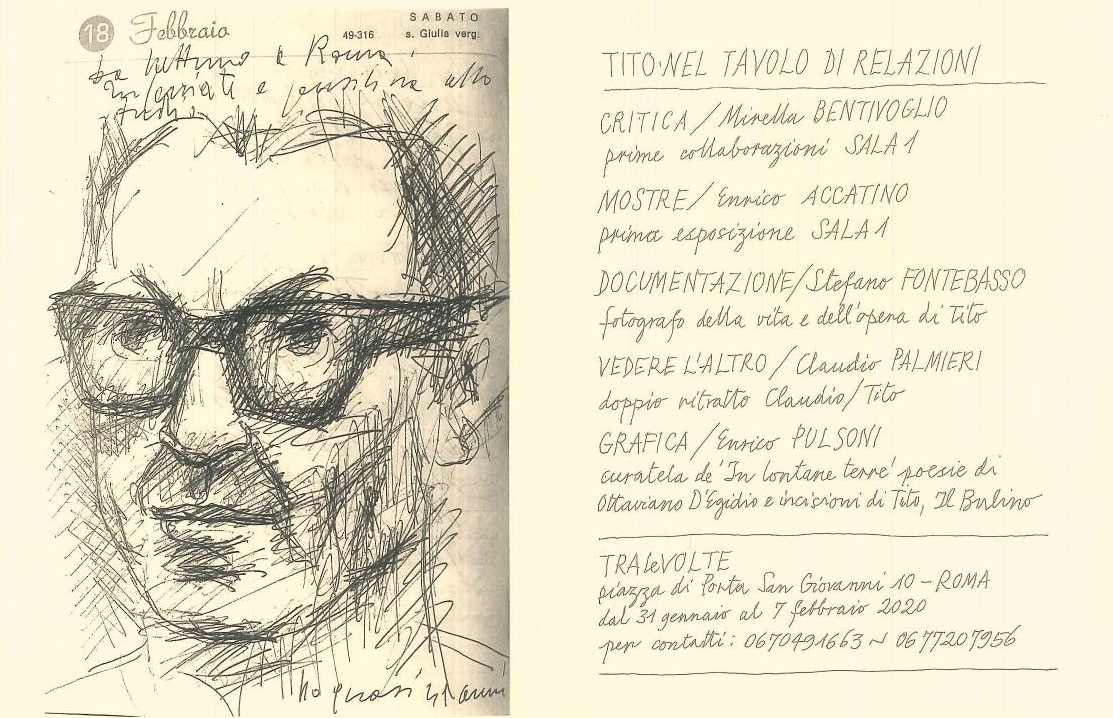 18 Febbraio
49-316
SABATO
s. Giulia verg.
a Roma
e
ho quasi anni
TITO·NEL TAVOLO DI RELAZIONI
CRITICA / Mirella BENTIVOGLIO
prime collaborazioni SALA 1
MOSTRE / Enrico ACCATINO
prima esposizione SALA 1
DOCUMENTAZIONE/Stefano FONTEBASSO
fotografo della vita e dell'opera di Tito
VEDERE L'ALTRO / Claudio PALMIERI
doppio ritratto Claudio/Tito
GRAFICA / Enrico PULSONI
curatela de 'In lontane terre' poesie di
Ottaviano D'Egidio e incisioni di Tito, Il Bulino
TRAleVOLTE
piazza di Porta San Giovanni 10 – ROMA
dal 31 gennaio al 7 febbraio 2020
per contatti: 0670491663 ~ 0677207956